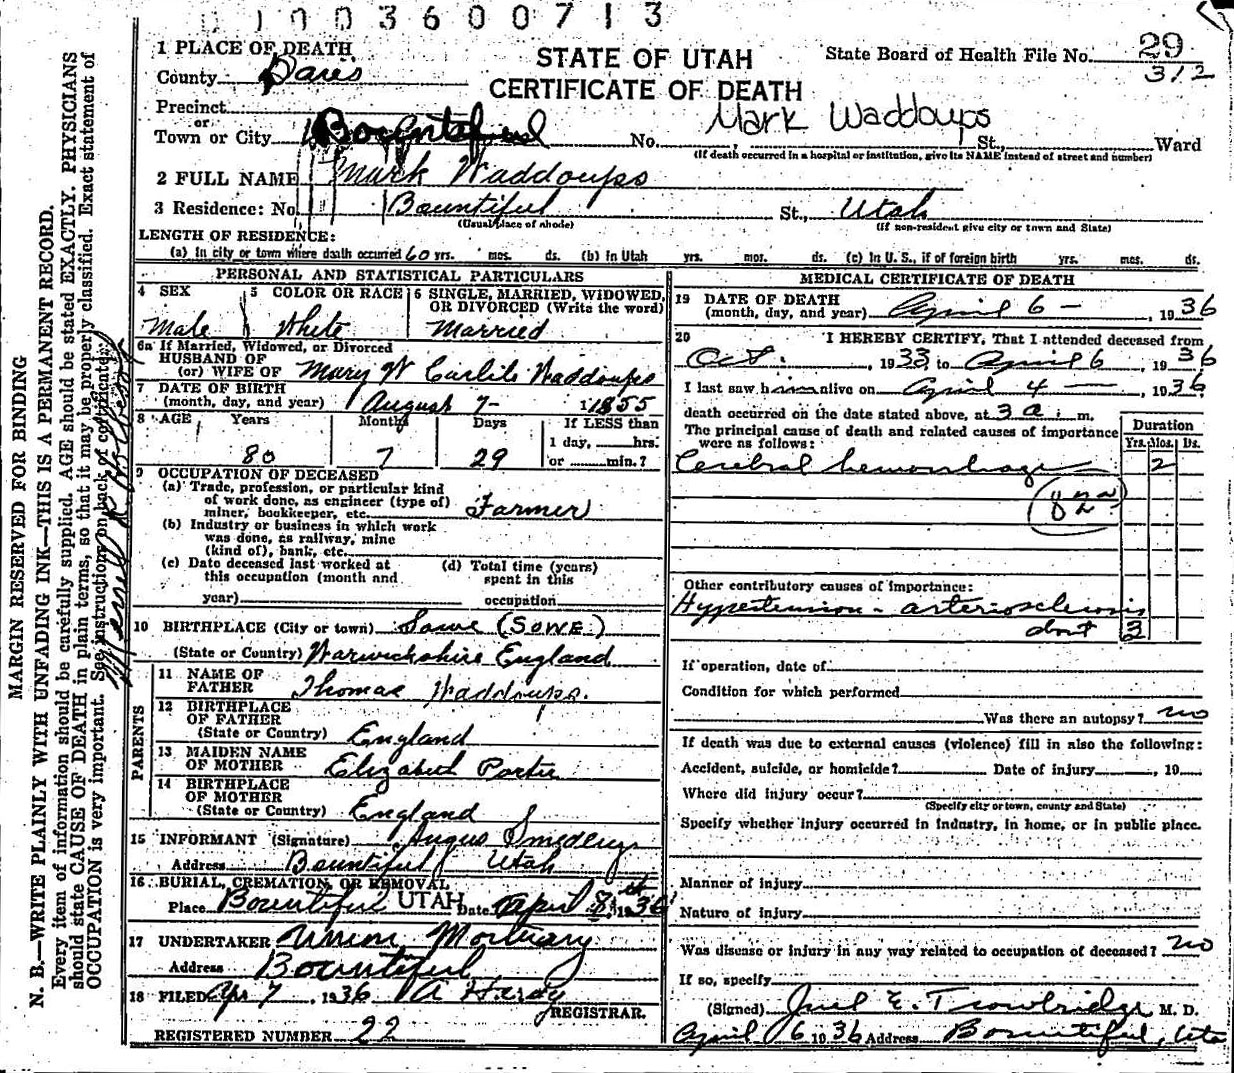 1003600713
1 PLACE OF DEATH
County Davis
STATE OF UTAH
CERTIFICATE OF DEATH
State Board of Health File No. 29
312
Precinct
or
Town or City Bountiful No. St., Ward
Mark Waddoups
(If death occurred in a hospital or institution, give its NAME instead of street and number)
2 FULL NAME Mark Waddoups
3 Residence: No. Bountiful St., Utah
(Usual place of abode) (If non-resident give city or town and State)
LENGTH OF RESIDENCE:
(a) In city or town where death occurred 60 yrs. mos. ds. (b) In Utah yrs. mos. ds. (c) In U. S., if of foreign birth yrs. mos. ds.
PERSONAL AND STATISTICAL PARTICULARS
4 SEX 5 COLOR OR RACE 6 SINGLE, MARRIED, WIDOWED,
OR DIVORCED (Write the word)
Male White Married
6a If Married, Widowed, or Divorced
HUSBAND OF
(or) WIFE OF Mary W Corlile Waddoups
7 DATE OF BIRTH
(month, day, and year) August 7- 1855
8 AGE Years Months Days If LESS than
1 day, hrs.
80 7 29 or min.?
9 OCCUPATION OF DECEASED
(a) Trade, profession, or particular kind
of work done, as engineer (type of)
miner, bookkeeper, etc. Farmer
(b) Industry or business in which work
was done, as railway, mine
(kind of), bank, etc.
(c) Date deceased last worked at
this occupation (month and
year)
(d) Total time (years)
spent in this
occupation
10 BIRTHPLACE (City or town) Sowe (SOWE)
(State or Country) Warwickshire England
PARENTS
11 NAME OF
FATHER Thomas Waddoups.
12 BIRTHPLACE
OF FATHER
(State or Country) England
13 MAIDEN NAME
OF MOTHER Elizabeth Porter
14 BIRTHPLACE
OF MOTHER
(State or Country) England
15 INFORMANT (Signature) Angus Smedley
Address Bountiful Utah
16 BURIAL, CREMATION, OR REMOVAL
Place Bountiful UTAH Date April 8th, 1936
17 UNDERTAKER Union Mortuary
Address Bountiful
18 FILED Apr 7, 1936 A Hardy
REGISTRAR.
REGISTERED NUMBER 22
MEDICAL CERTIFICATE OF DEATH
19 DATE OF DEATH
(month, day, and year) April 6 - , 1936
20 I HEREBY CERTIFY, That I attended deceased from
Oct. , 1933, to April 6, 1936
I last saw him alive on April 4 , 1936
death occurred on the date stated above, at 3 a. m.
The principal cause of death and related causes of importance
were as follows:
Duration
Yrs. Mos. Ds.
Cerebral hemorrhage 2
82a
Other contributory causes of importance:
Hypertension - arteriosclerosis
about 3
If operation, date of
Condition for which performed
Was there an autopsy? no
If death was due to external causes (violence) fill in also the following:
Accident, suicide, or homicide? Date of injury , 19
Where did injury occur?
(Specify city or town, county and State)
Specify whether injury occurred in industry, in home, or in public place.
Manner of injury
Nature of injury
Was disease or injury in any way related to occupation of deceased? no
If so, specify
(Signed) E. Trowbridge M. D.
April 6 1936 Address Bountiful, Uta
MARGIN RESERVED FOR BINDING
N. B.—WRITE PLAINLY WITH UNFADING INK—THIS IS A PERMANENT RECORD.
Every item of information should be carefully supplied. AGE should be stated EXACTLY. PHYSICIANS
should state CAUSE OF DEATH in plain terms, so that it may be properly classified. Exact statement of
OCCUPATION is very important. See instructions on back of certificate.